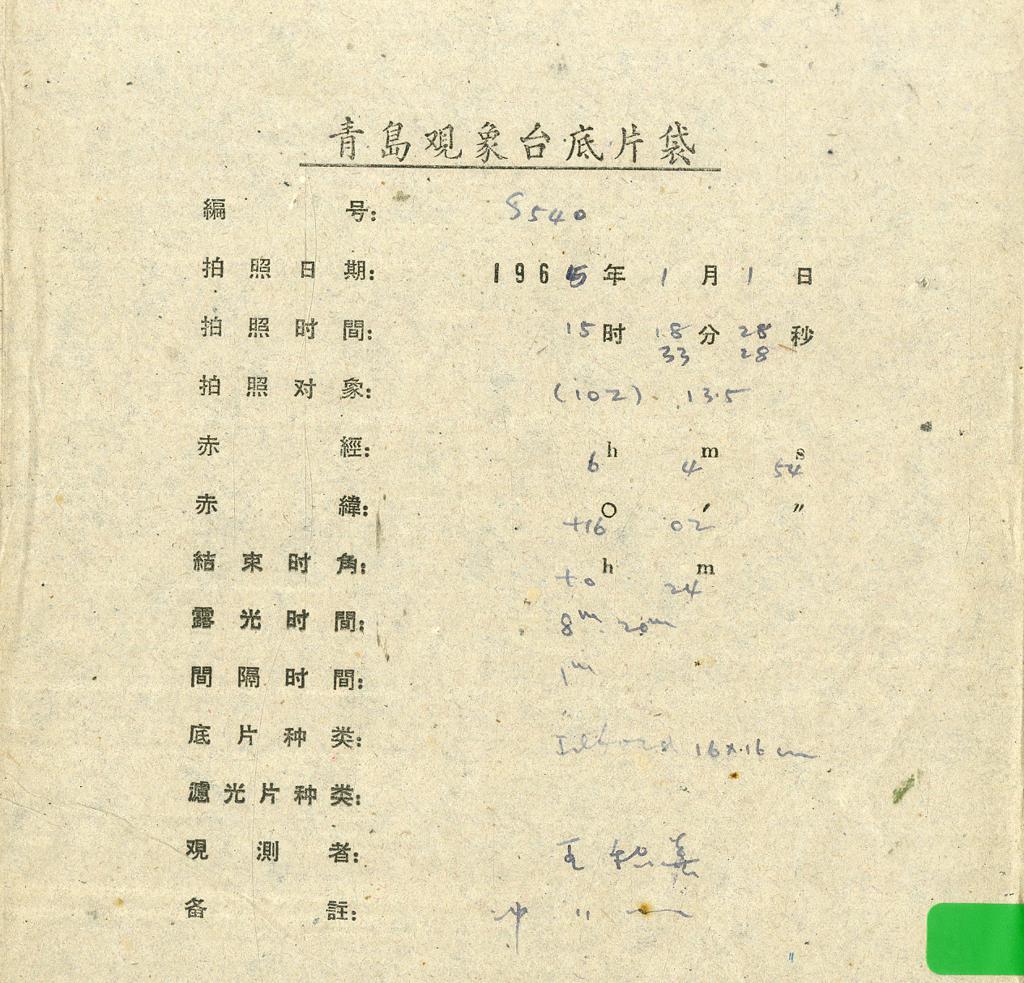 青島观象台底片袋
編号: S540
拍照日期: 1965年1月1日
拍照时間: 15时18分28秒
33 28
拍照对象: (102) 13.5
赤經: 6h 4m 54s
赤緯: +16° 02′ ″
結束时角: +0h 24m
露光时間: 8m. 20m
間隔时間: 1m
底片种类: Ilford 16×16 cm
濾光片种类:
观測者: 王
备註: